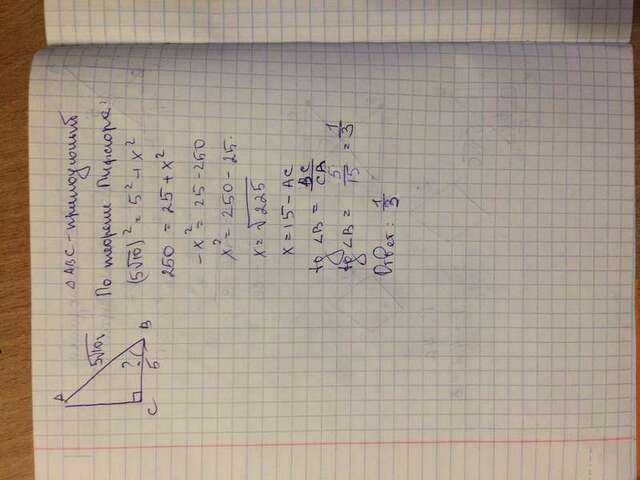 A
5√10
?
C
5
B
△ABC - прямоугольный
По теореме Пифагора:
(5√10)² = 5² + x²
250 = 25 + x²
-x² = 25 - 250
x² = 250 - 25
x = √225
x = 15 - AC
tg ∠B = BC/CA
tg ∠B = 5/15 = 1/3
Ответ: 1/3